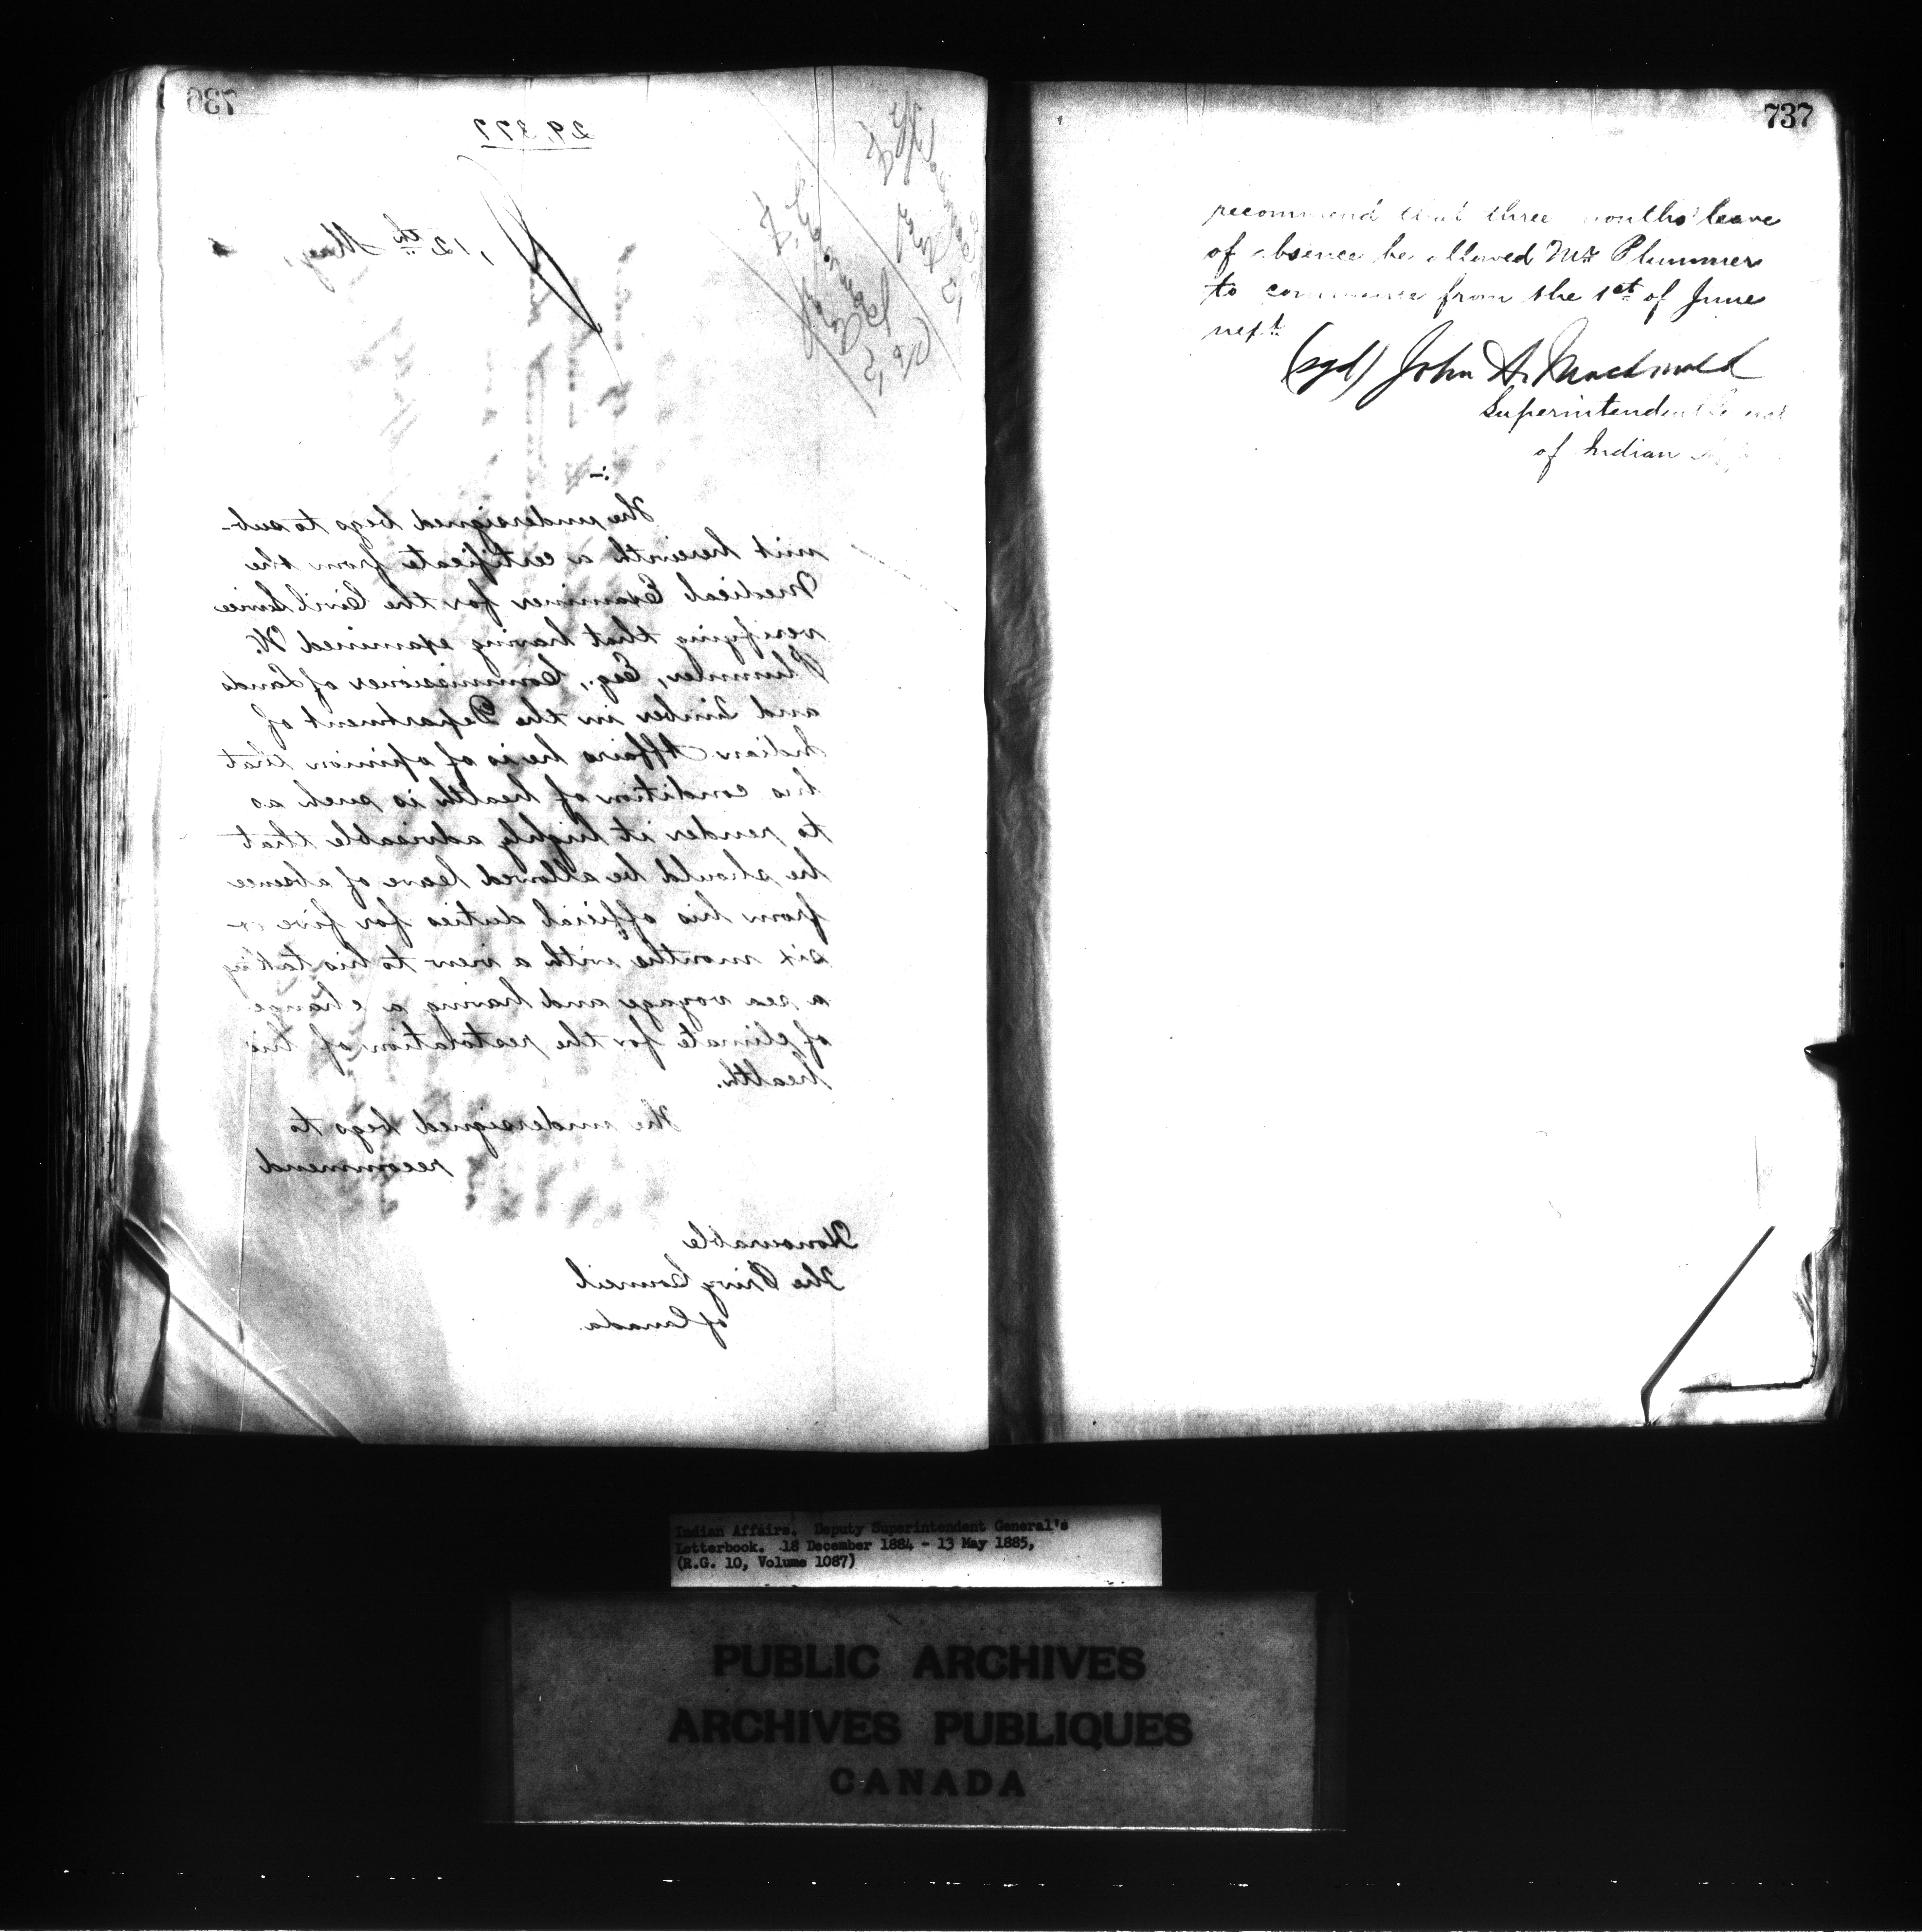 736
29,377
12th May,
The undersigned begs to sub-
mit herewith a certificate from the
Medical Examiner for the Civil Service
verifying that having examined W.
Plummer, Esq., Commissioner of Lands
and Timber in the Department of
Indian Affairs he is of opinion that
his condition of health is such as
to render it highly advisable that
he should be allowed leave of absence
from his official duties for five or
six months with a view to his taking
a sea voyage and having a change
of climate for the restoration of his
health.
The undersigned begs to
recommend
Honourable
The Privy Council
of Canada.
737
recommend that three months' leave
of absence be allowed Mr. Plummer
to commence from the 1st of June
next.
(sgd) John A. Macdonald
Superintendent General
of Indian
Indian Affairs. Deputy Superintendent General's
Letterbook. 18 December 1884 - 13 May 1885,
(R.G. 10, Volume 1087)
PUBLIC ARCHIVES
ARCHIVES PUBLIQUES
CANADA